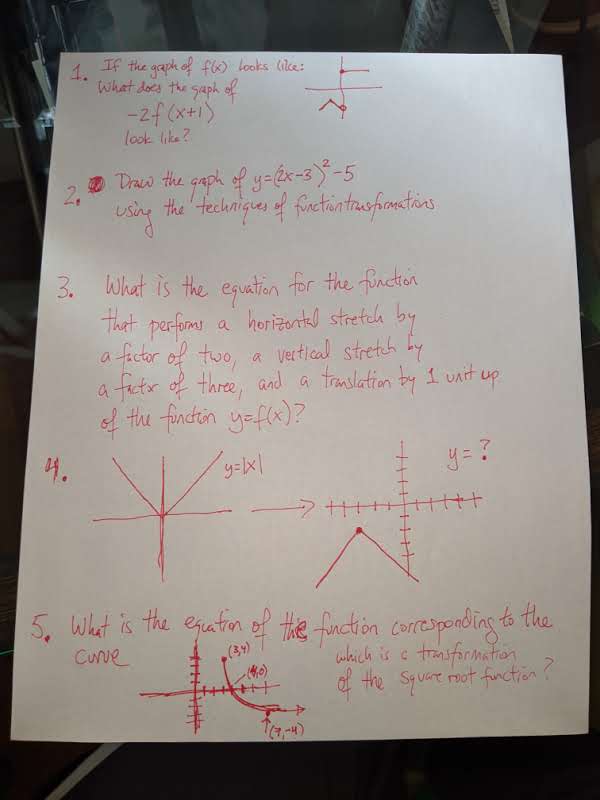 1. If the graph of f(x) looks like:
What does the graph of
-2f(x+1)
look like?
2. Draw the graph of y=(2x-3)²-5
using the techniques of function transformations
3. What is the equation for the function
that performs a horizontal stretch by
a factor of two, a vertical stretch by
a factor of three, and a translation by 1 unit up
of the function y=f(x)?
4. y=|x|
y=?
5. What is the equation of the function corresponding to the
curve
which is a transformation
of the square root function?
(3,4)
(4,0)
(7,-4)